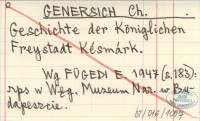 GENERSICH Ch.
Geschichte der Königlichen
Freystadt Késmárk.
Wg FÜGEDI E. 1947 (s. 183):
rps w Węg. Museum Nar. w Bu-
dapeszcie.